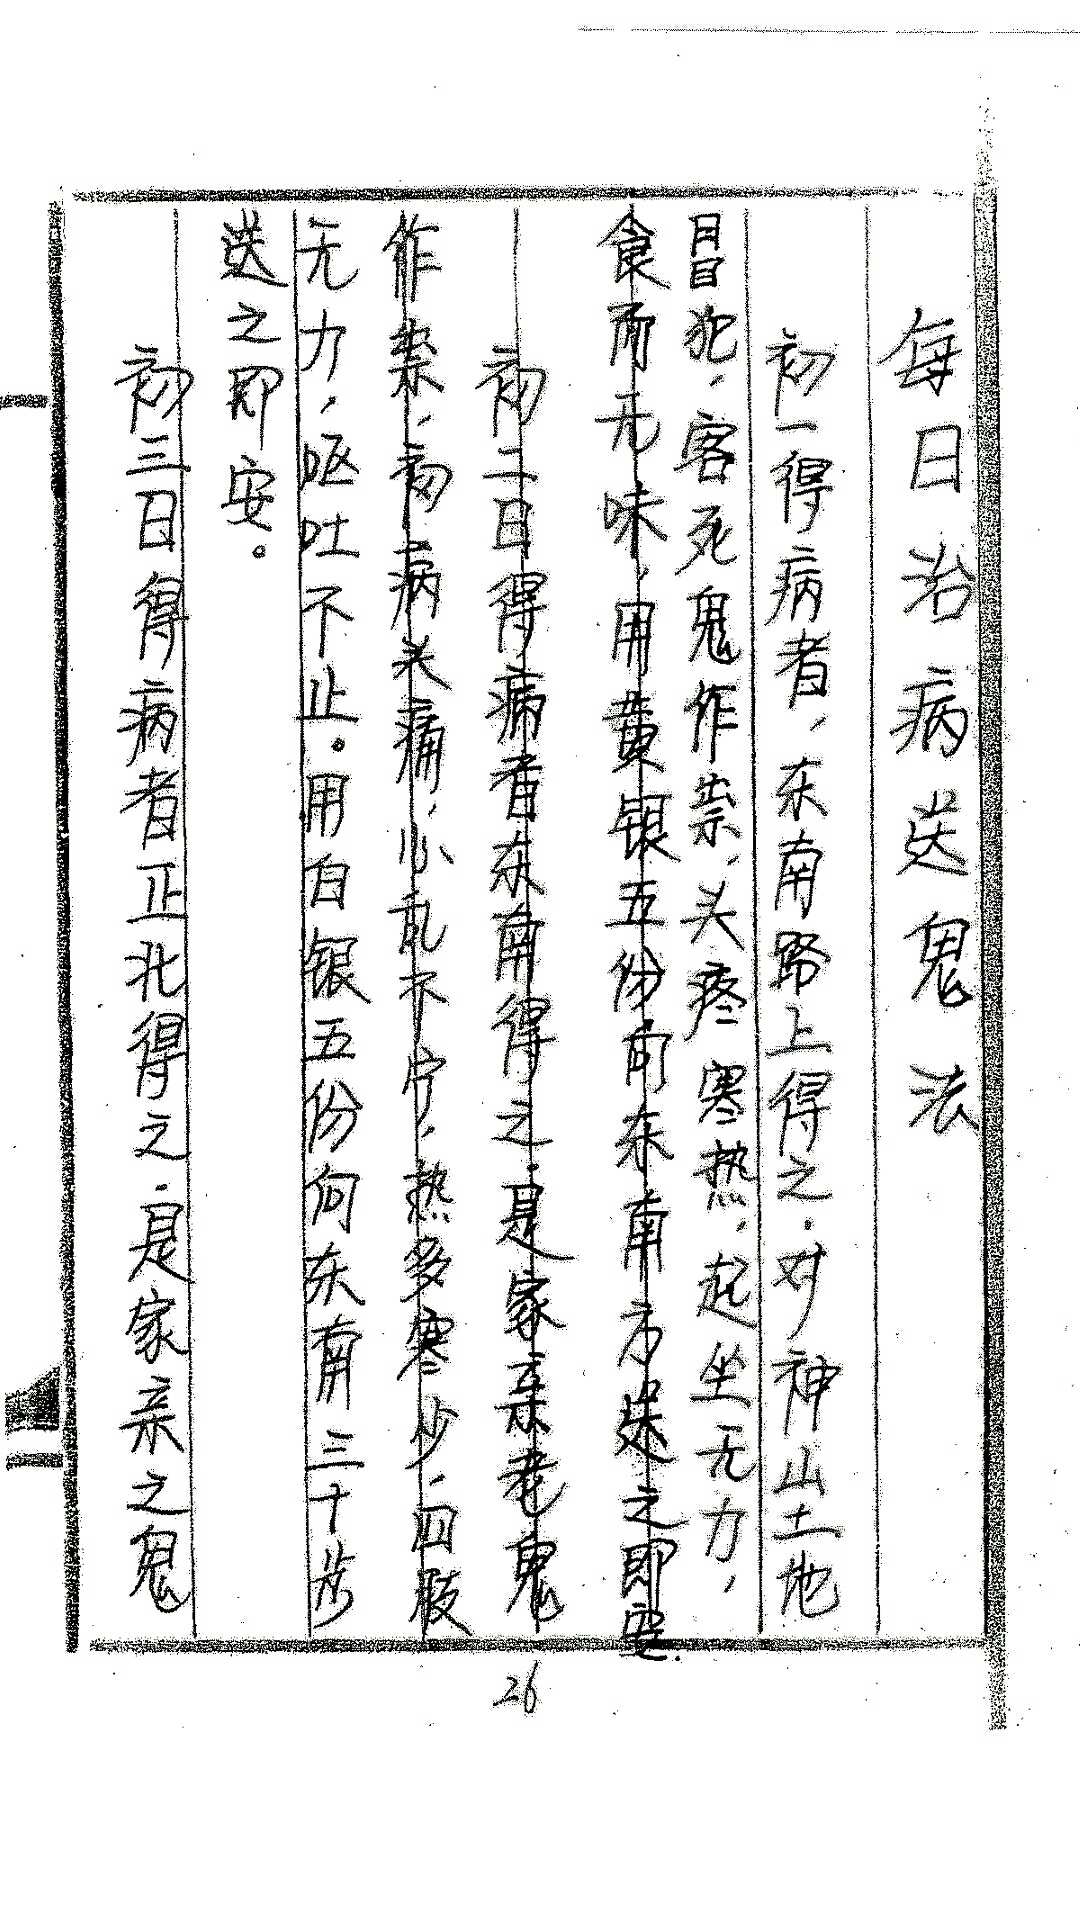 每日治病送鬼法
初一得病者，东南路上得之．对神山土地
冒犯，客死鬼作祟，头疼寒热，起坐无力，
食而无味，用黄银五份向东南方送之即安．
初二日得病者东南得之．是家亲老鬼
作祟，初病头痛，心乱不宁，热多寒少，四肢
无力，呕吐不止。用白银五份向东南三十步
送之即安。
初三日得病者正北得之．是家亲之鬼
26